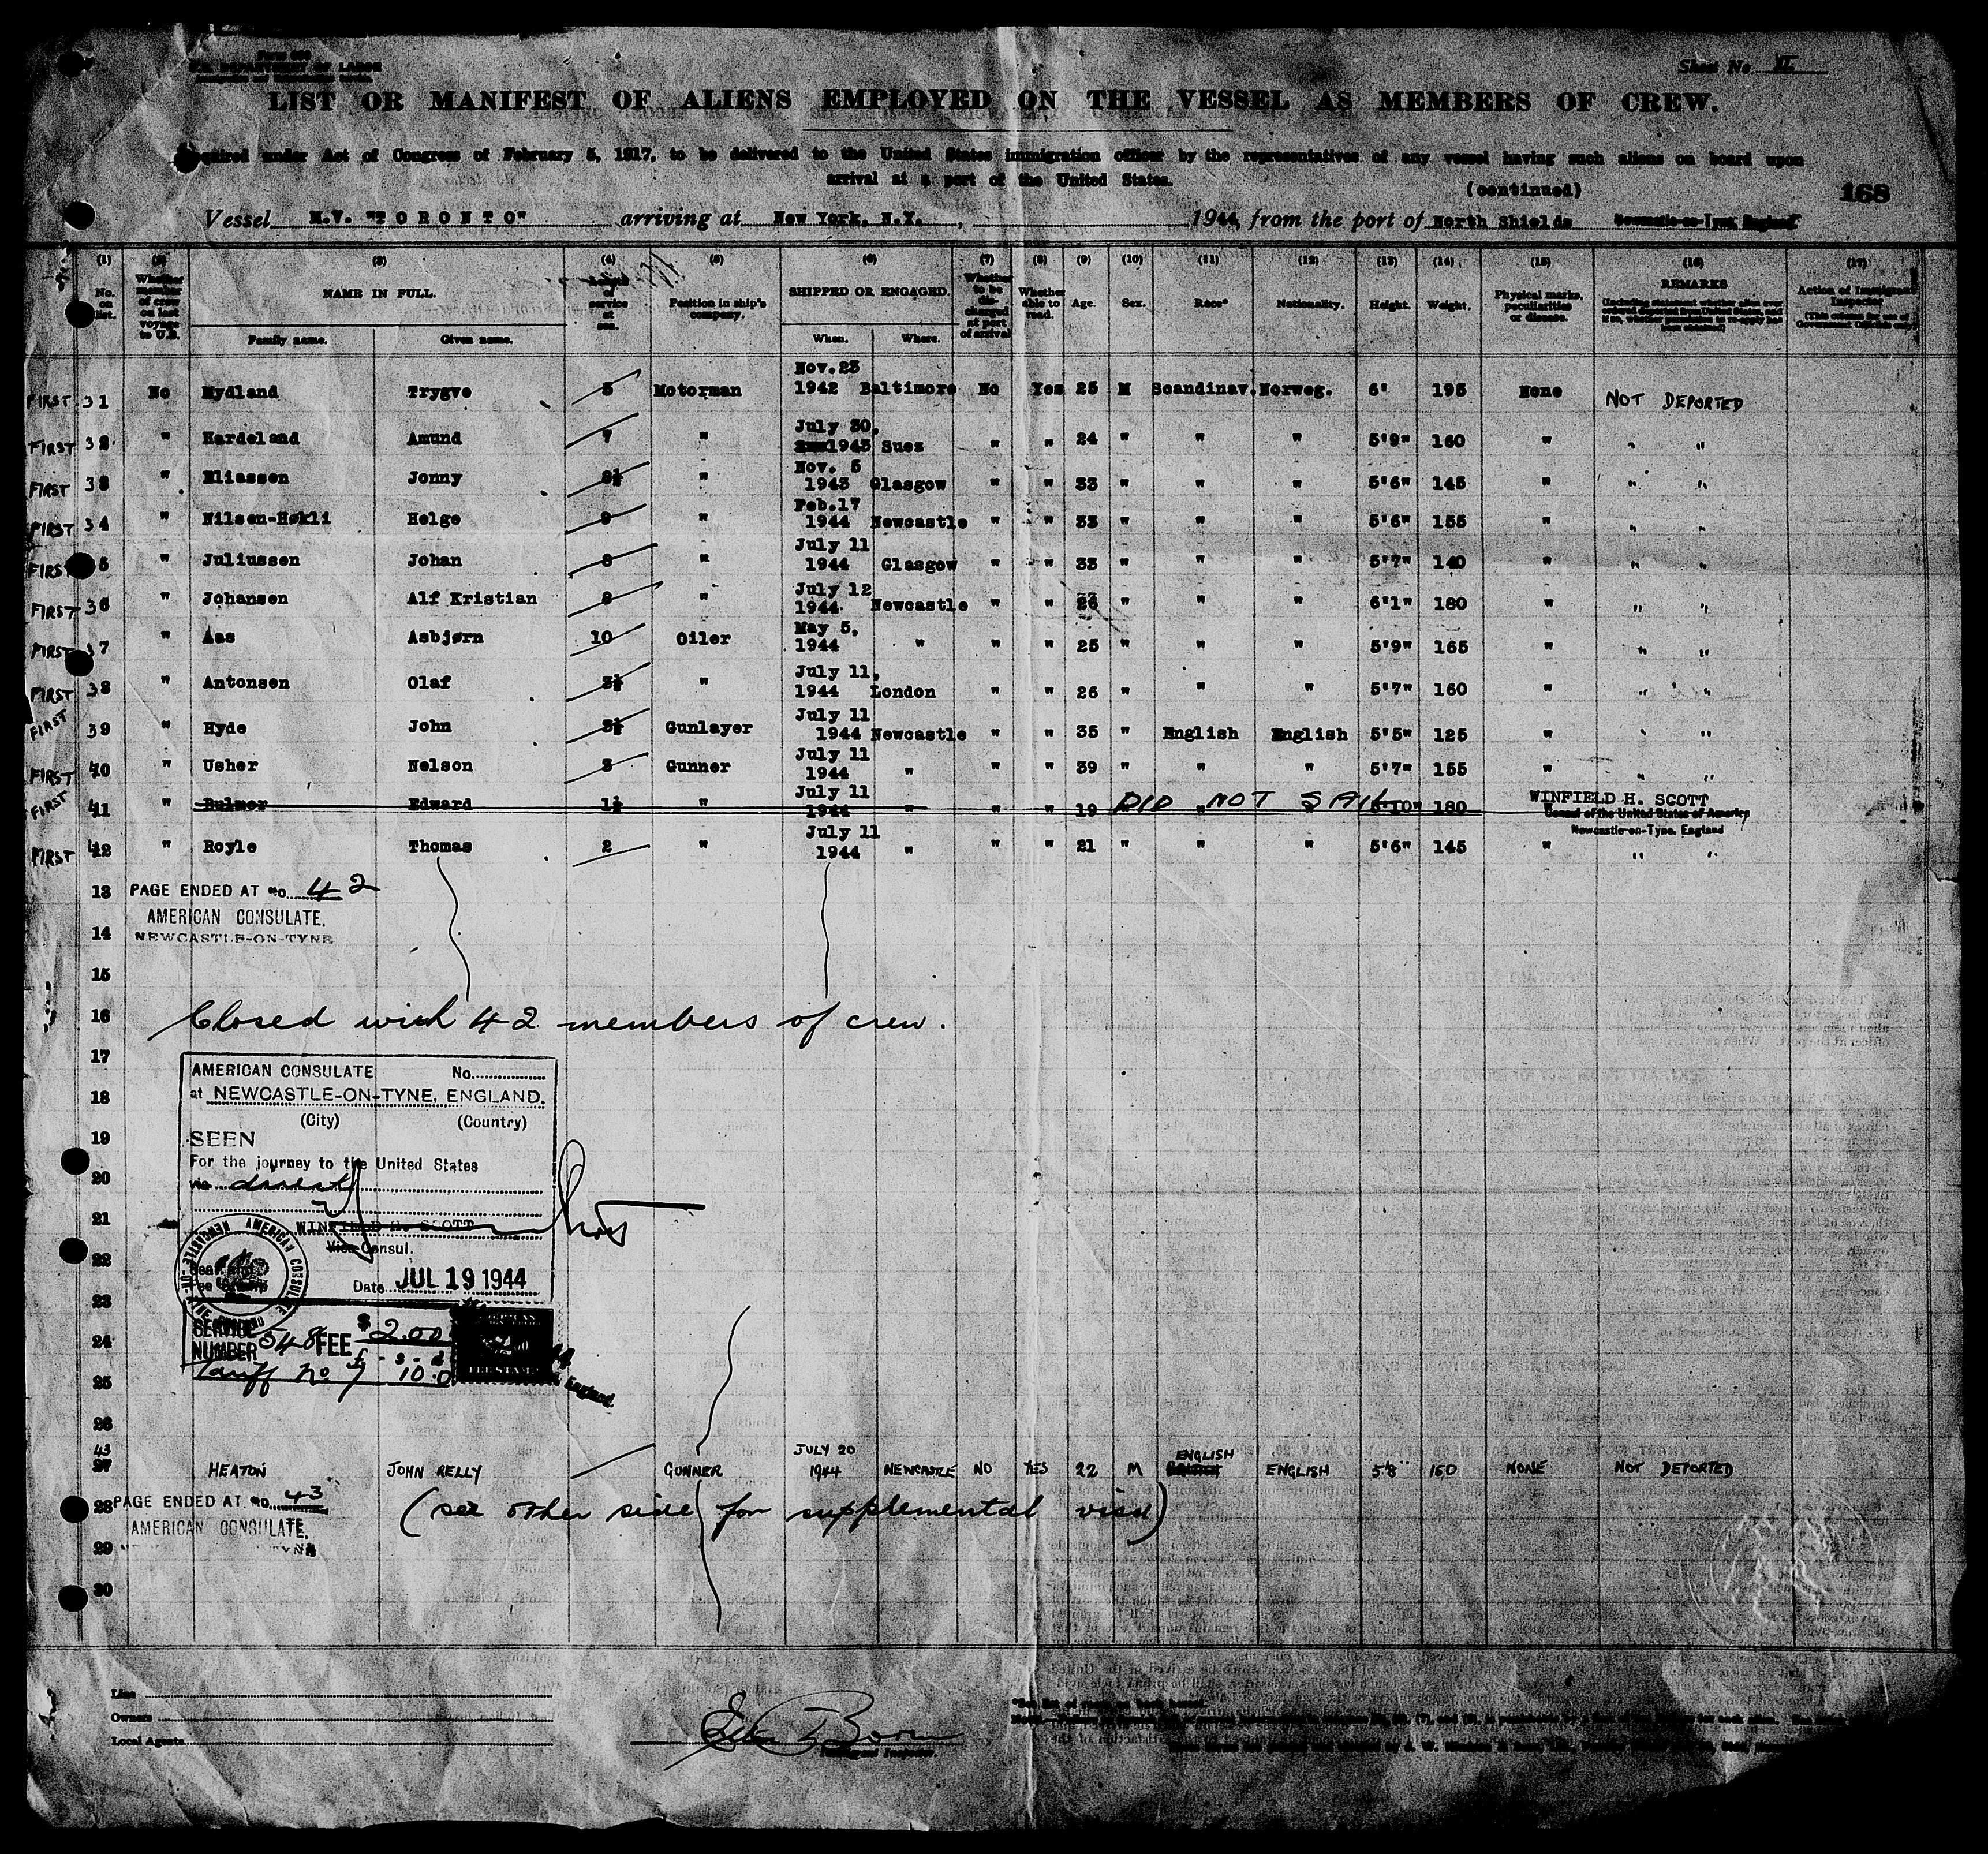 Sheet No. VI
U.S. DEPARTMENT OF LABOR
LIST OR MANIFEST OF ALIENS EMPLOYED ON THE VESSEL AS MEMBERS OF CREW.
Required under Act of Congress of February 5, 1917, to be delivered to the United States immigration officer by the representatives of any vessel having such aliens on board upon
arrival at a port of the United States.
(continued)
168
Vessel M.V. "TORONTO" arriving at New York, N.Y., 1944, from the port of North Shields Newcastle-on-Tyne, England
(1) (2) (3) (4) (5) (6) (7) (8) (9) (10) (11) (12) (13) (14) (15) (16) (17)
No. on list.
Whether member of crew on last voyage to U.S.
NAME IN FULL.
Family name. Given name.
Length of service at sea.
Position in ship's company.
SHIPPED OR ENGAGED.
When. Where.
Whether to be discharged at port of arrival
Whether able to read.
Age. Sex. Race* Nationality. Height. Weight.
Physical marks, peculiarities or disease.
REMARKS
Action of Immigrant Inspector
(This column for use of Government Officials only)
FIRST 31 No Nydland Trygve 5 Motorman Nov.23 1942 Baltimore No Yes 25 M Scandinav. Norweg. 6' 195 None NOT DEPORTED
FIRST 32 " Hardeland Amund 7 " July 30, 1943 Suez " " 24 " " " 5'9" 160 " " "
FIRST 33 " Eliassen Jonny 8½ " Nov. 5 1943 Glasgow " " 33 " " " 5'6" 145 " " "
FIRST 34 " Nilsen-Høkli Helge 9 " Feb.17 1944 Newcastle " " 33 " " " 5'6" 155 " " "
FIRST 5 " Juliussen Johan 8 " July 11 1944 Glasgow " " 33 " " " 5'7" 140 " " "
FIRST 36 " Johansen Alf Kristian 8 " July 12 1944 Newcastle " " 26 " " " 6'1" 180 " " "
FIRST 37 " Aas Asbjørn 10 Oiler May 5, 1944 " " " 25 " " " 5'9" 165 " " "
FIRST 38 " Antonsen Olaf 3½ " July 11, 1944 London " " 26 " " " 5'7" 160 " " "
FIRST 39 " Hyde John 3½ Gunlayer July 11 1944 Newcastle " " 35 " English English 5'5" 125 " " "
FIRST 40 " Usher Nelson 3 Gunner July 11 1944 " " " 39 " " " 5'7" 155 " " "
FIRST 41 " Bulmer Edward 1½ " July 11 1944 " " " 19 DID NOT SAIL 5'10" 180 "
WINFIELD H. SCOTT
Consul of the United States of America
Newcastle-on-Tyne, England
FIRST 42 " Royle Thomas 2 " July 11 1944 " " " 21 " " " 5'6" 145 " " "
13 PAGE ENDED AT no. 42
AMERICAN CONSULATE,
14 NEWCASTLE-ON-TYNE
15
16 Closed with 42 members of crew.
17
AMERICAN CONSULATE No.
18 at NEWCASTLE-ON-TYNE, ENGLAND.
(City) (Country)
19 SEEN
For the journey to the United States
20 via direct
21 WINFIELD H. SCOTT
Vice Consul.
22
AMERICAN CONSULATE NEWCASTLE-ON-TYNE
Date JUL 19 1944
23
SERVICE NUMBER 548 FEE $2.00
24
Tariff No 7 £-s-d 10.0
England
25
26
43 27 HEATON JOHN RELLY GUNNER JULY 20 1944 NEWCASTLE NO YES 22 M ENGLISH ENGLISH 5'8" 150 NONE NOT DEPORTED
28 PAGE ENDED AT no. 43
(see other side for supplemental visa)
AMERICAN CONSULATE,
29
30
Line
Owners
Local Agents
Immigrant Inspector.